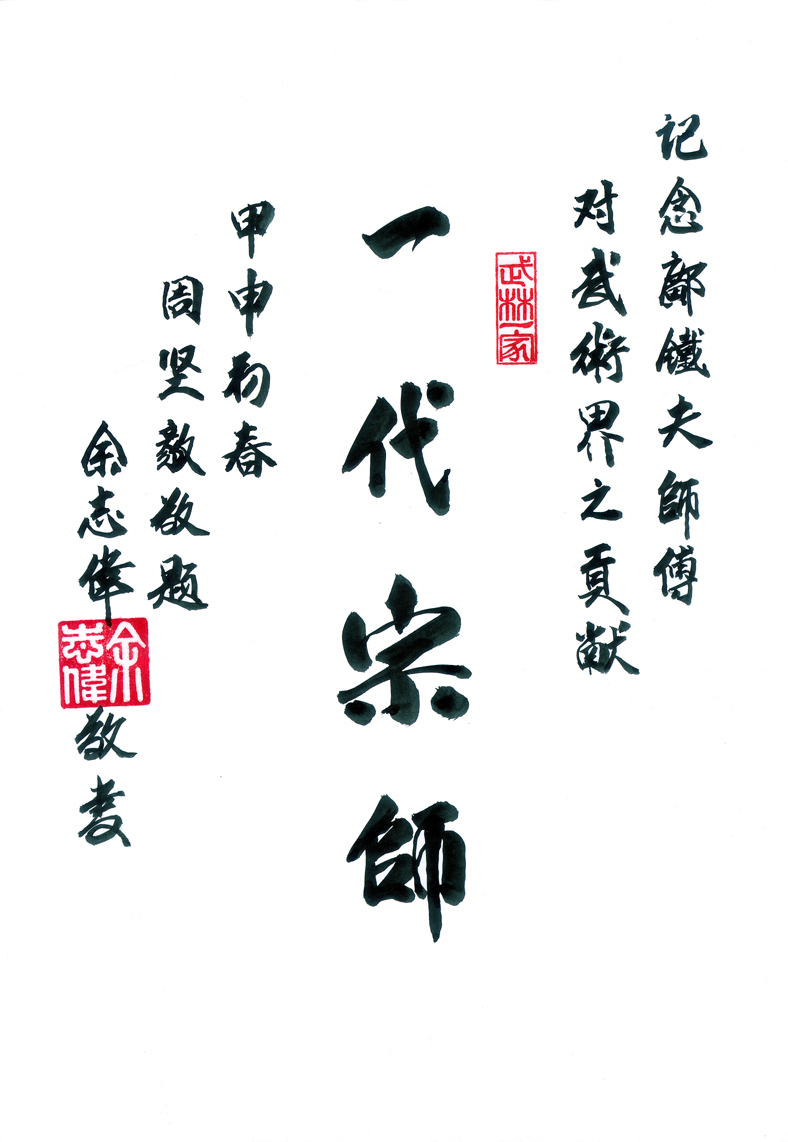 记念鄺鐵夫師傅
对武術界之貢献
武林一家
一代宗師
甲申初春
周坚敬题
余志偉敬
余志偉